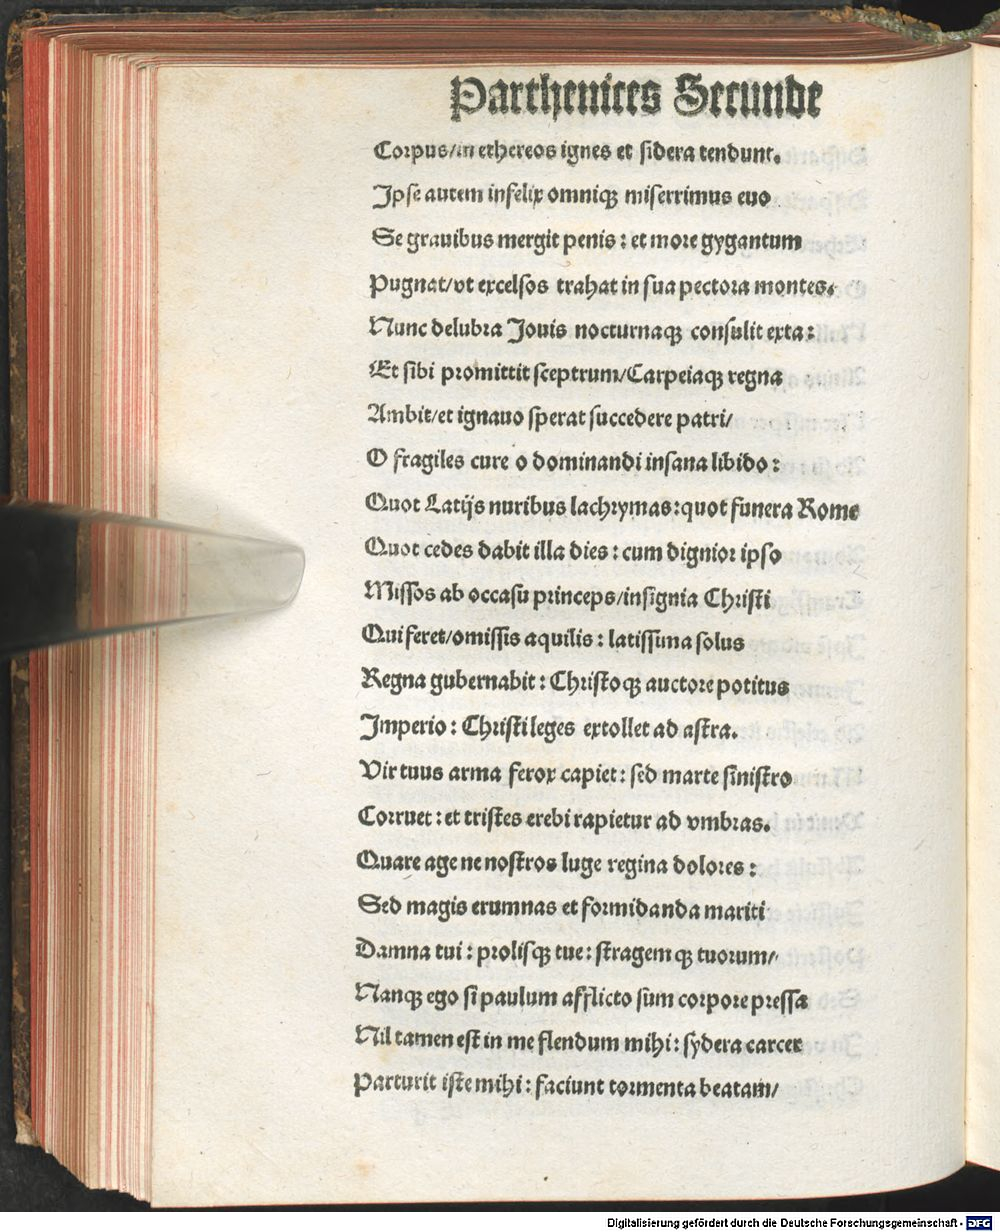 Parthenices Secunde
Corpus/in ethereos ignes et sidera tendunt.
Ipse autem infelix omniqꝫ miserrimus euo
Se grauibus mergit penis: et more gygantum
Pugnat/vt excelsos trahat in sua pectora montes.
Nunc delubra Iouis nocturnaqꝫ consulit exta:
Et sibi promittit sceptrum/Tarpeiaqꝫ regna
Ambit/et ignauo sperat succedere patri/
O fragiles cure o dominandi insana libido:
Quot Latijs nuribus lachrymas:quot funera Rome
Quot cedes dabit illa dies: cum dignior ipso
Missos ab occasu princeps/insignia Christi
Qui feret/omissis aquilis: latissima solus
Regna gubernabit: Christoqꝫ auctore potitus
Imperio: Christi leges extollet ad astra.
Vir tuus arma ferox capiet: sed marte sinistro
Corruet: et tristes erebi rapietur ad vmbras.
Quare age ne nostros luge regina dolores:
Sed magis erumnas et formidanda mariti
Damna tui: prolisqꝫ tue: stragem qꝫ tuorum/
Nanqꝫ ego si paulum afflicto sum corpore pressa
Nil tamen est in me flendum mihi: sydera carcer
Parturit iste mihi: faciunt tormenta beatam/
Digitalisierung gefördert durch die Deutsche Forschungsgemeinschaft - DFG